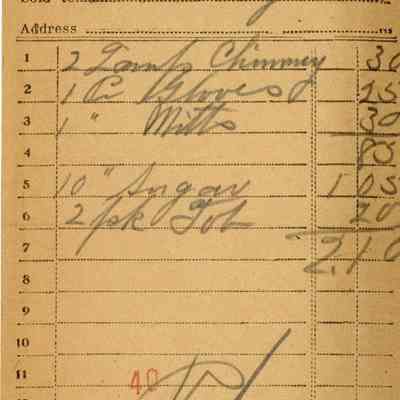 Address
1 2 Lamp Chimney 30
2 1 Pr Gloves 25
3 1 " Mitts 30
4 85
5 10 " Sugar 1 05
6 2 pk Tob 20
7 2.10
8
9
10
11 40